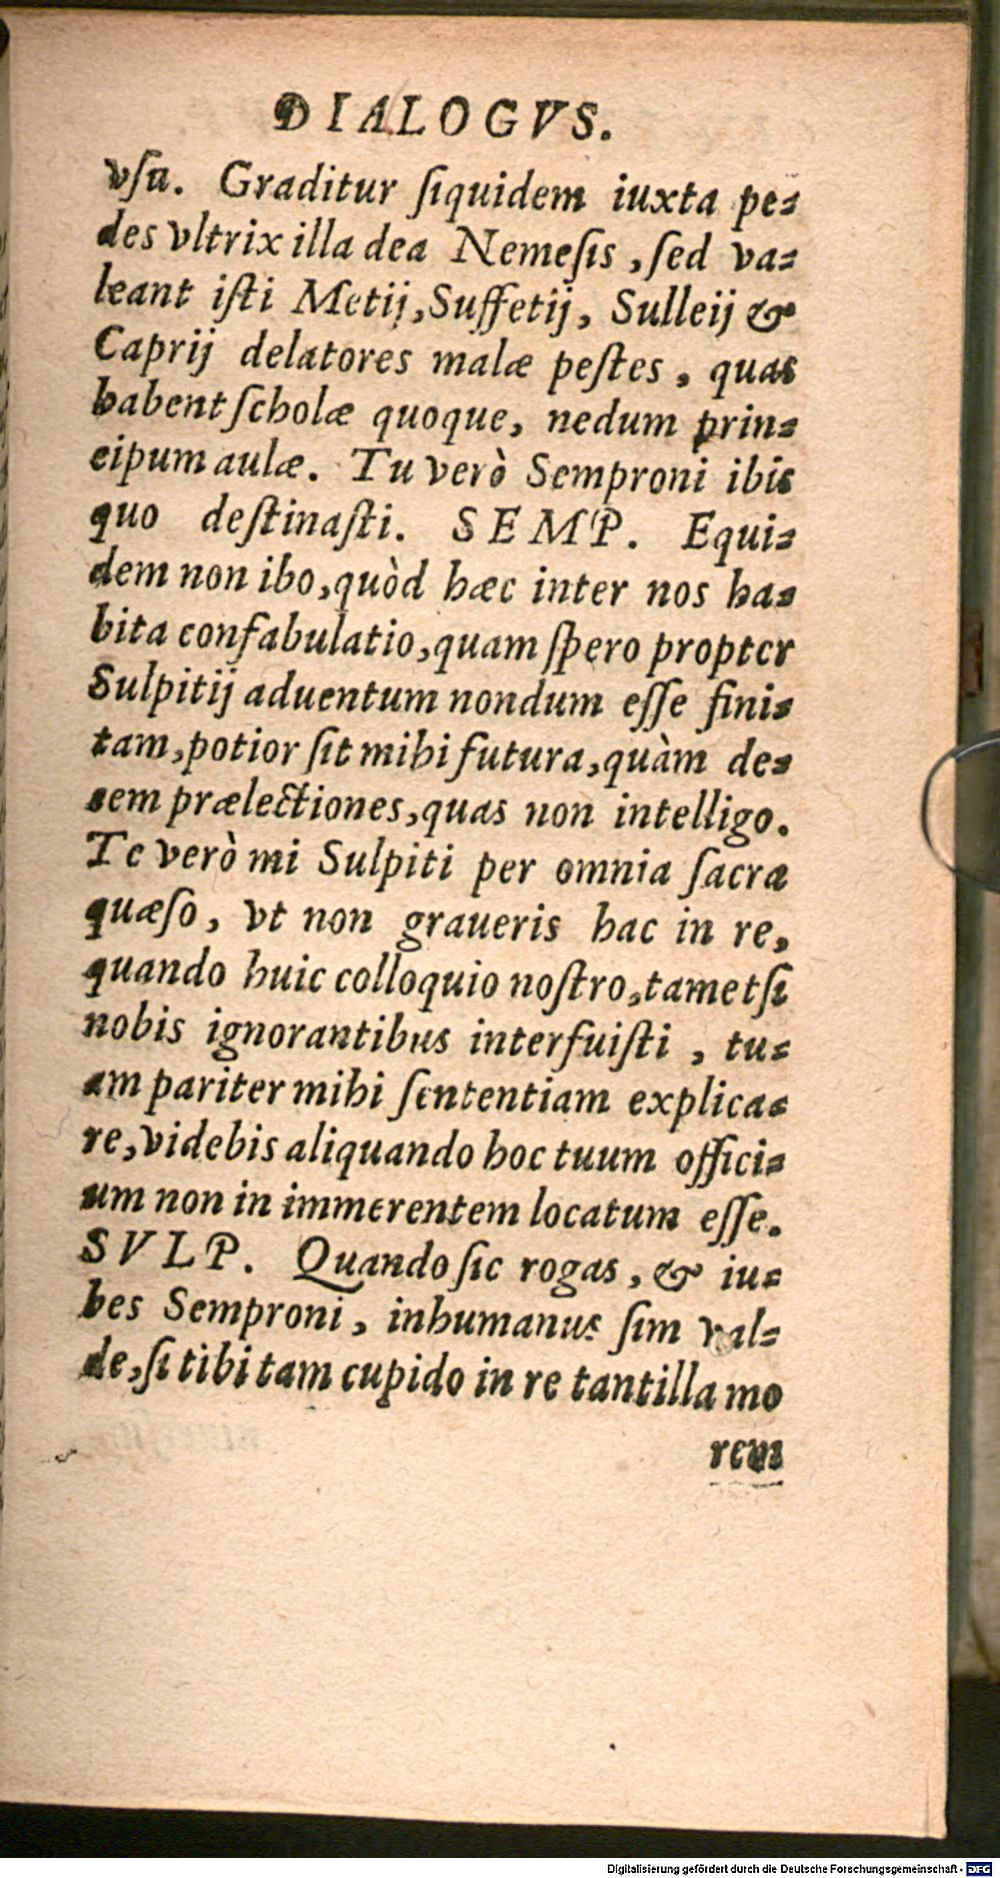 DIALOGVS.
vſu. Graditur ſiquidem iuxta pe=
des vltrix illa dea Nemeſis, ſed va=
leant iſti Metij, Suffetij, Sulleij &
Caprij delatores malæ peſtes, quas
habent ſcholæ quoque, nedum prin=
cipum aulæ. Tu verò Semproni ibis
quo deſtinaſti. SEMP. Equi=
dem non ibo, quòd hæc inter nos ha=
bita confabulatio, quam ſpero propter
Sulpitij aduentum nondum eſſe fini=
tam, potior ſit mihi futura, quàm de=
cem prælectiones, quas non intelligo.
Te verò mi Sulpiti per omnia ſacra
quæſo, vt non graueris hac in re,
quando huic colloquio noſtro, tametſi
nobis ignorantibus interfuiſti, tu=
am pariter mihi ſententiam explica=
re, videbis aliquando hoc tuum offici=
um non in immerentem locatum eſſe.
SVLP. Quando ſic rogas, & iu=
bes Semproni, inhumanus ſim val=
de, ſi tibi tam cupido in re tantilla mo
rem
Digitalisierung gefördert durch die Deutsche Forschungsgemeinschaft - DFG